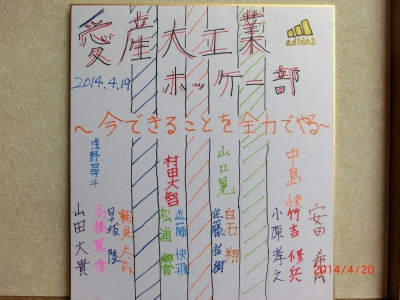 愛産大工業
adidas
2014.4.19
ホッケー部
～今できることを全力でやる～
安田
中島 快
竹吉 修兵
小原 孝之
山口 晃
白石 翔
佐藤 祐樹
村田大智
近藤 快飛
松浦 響
早坂 陸
浅野尋斗
山田 大貴
2014/4/20